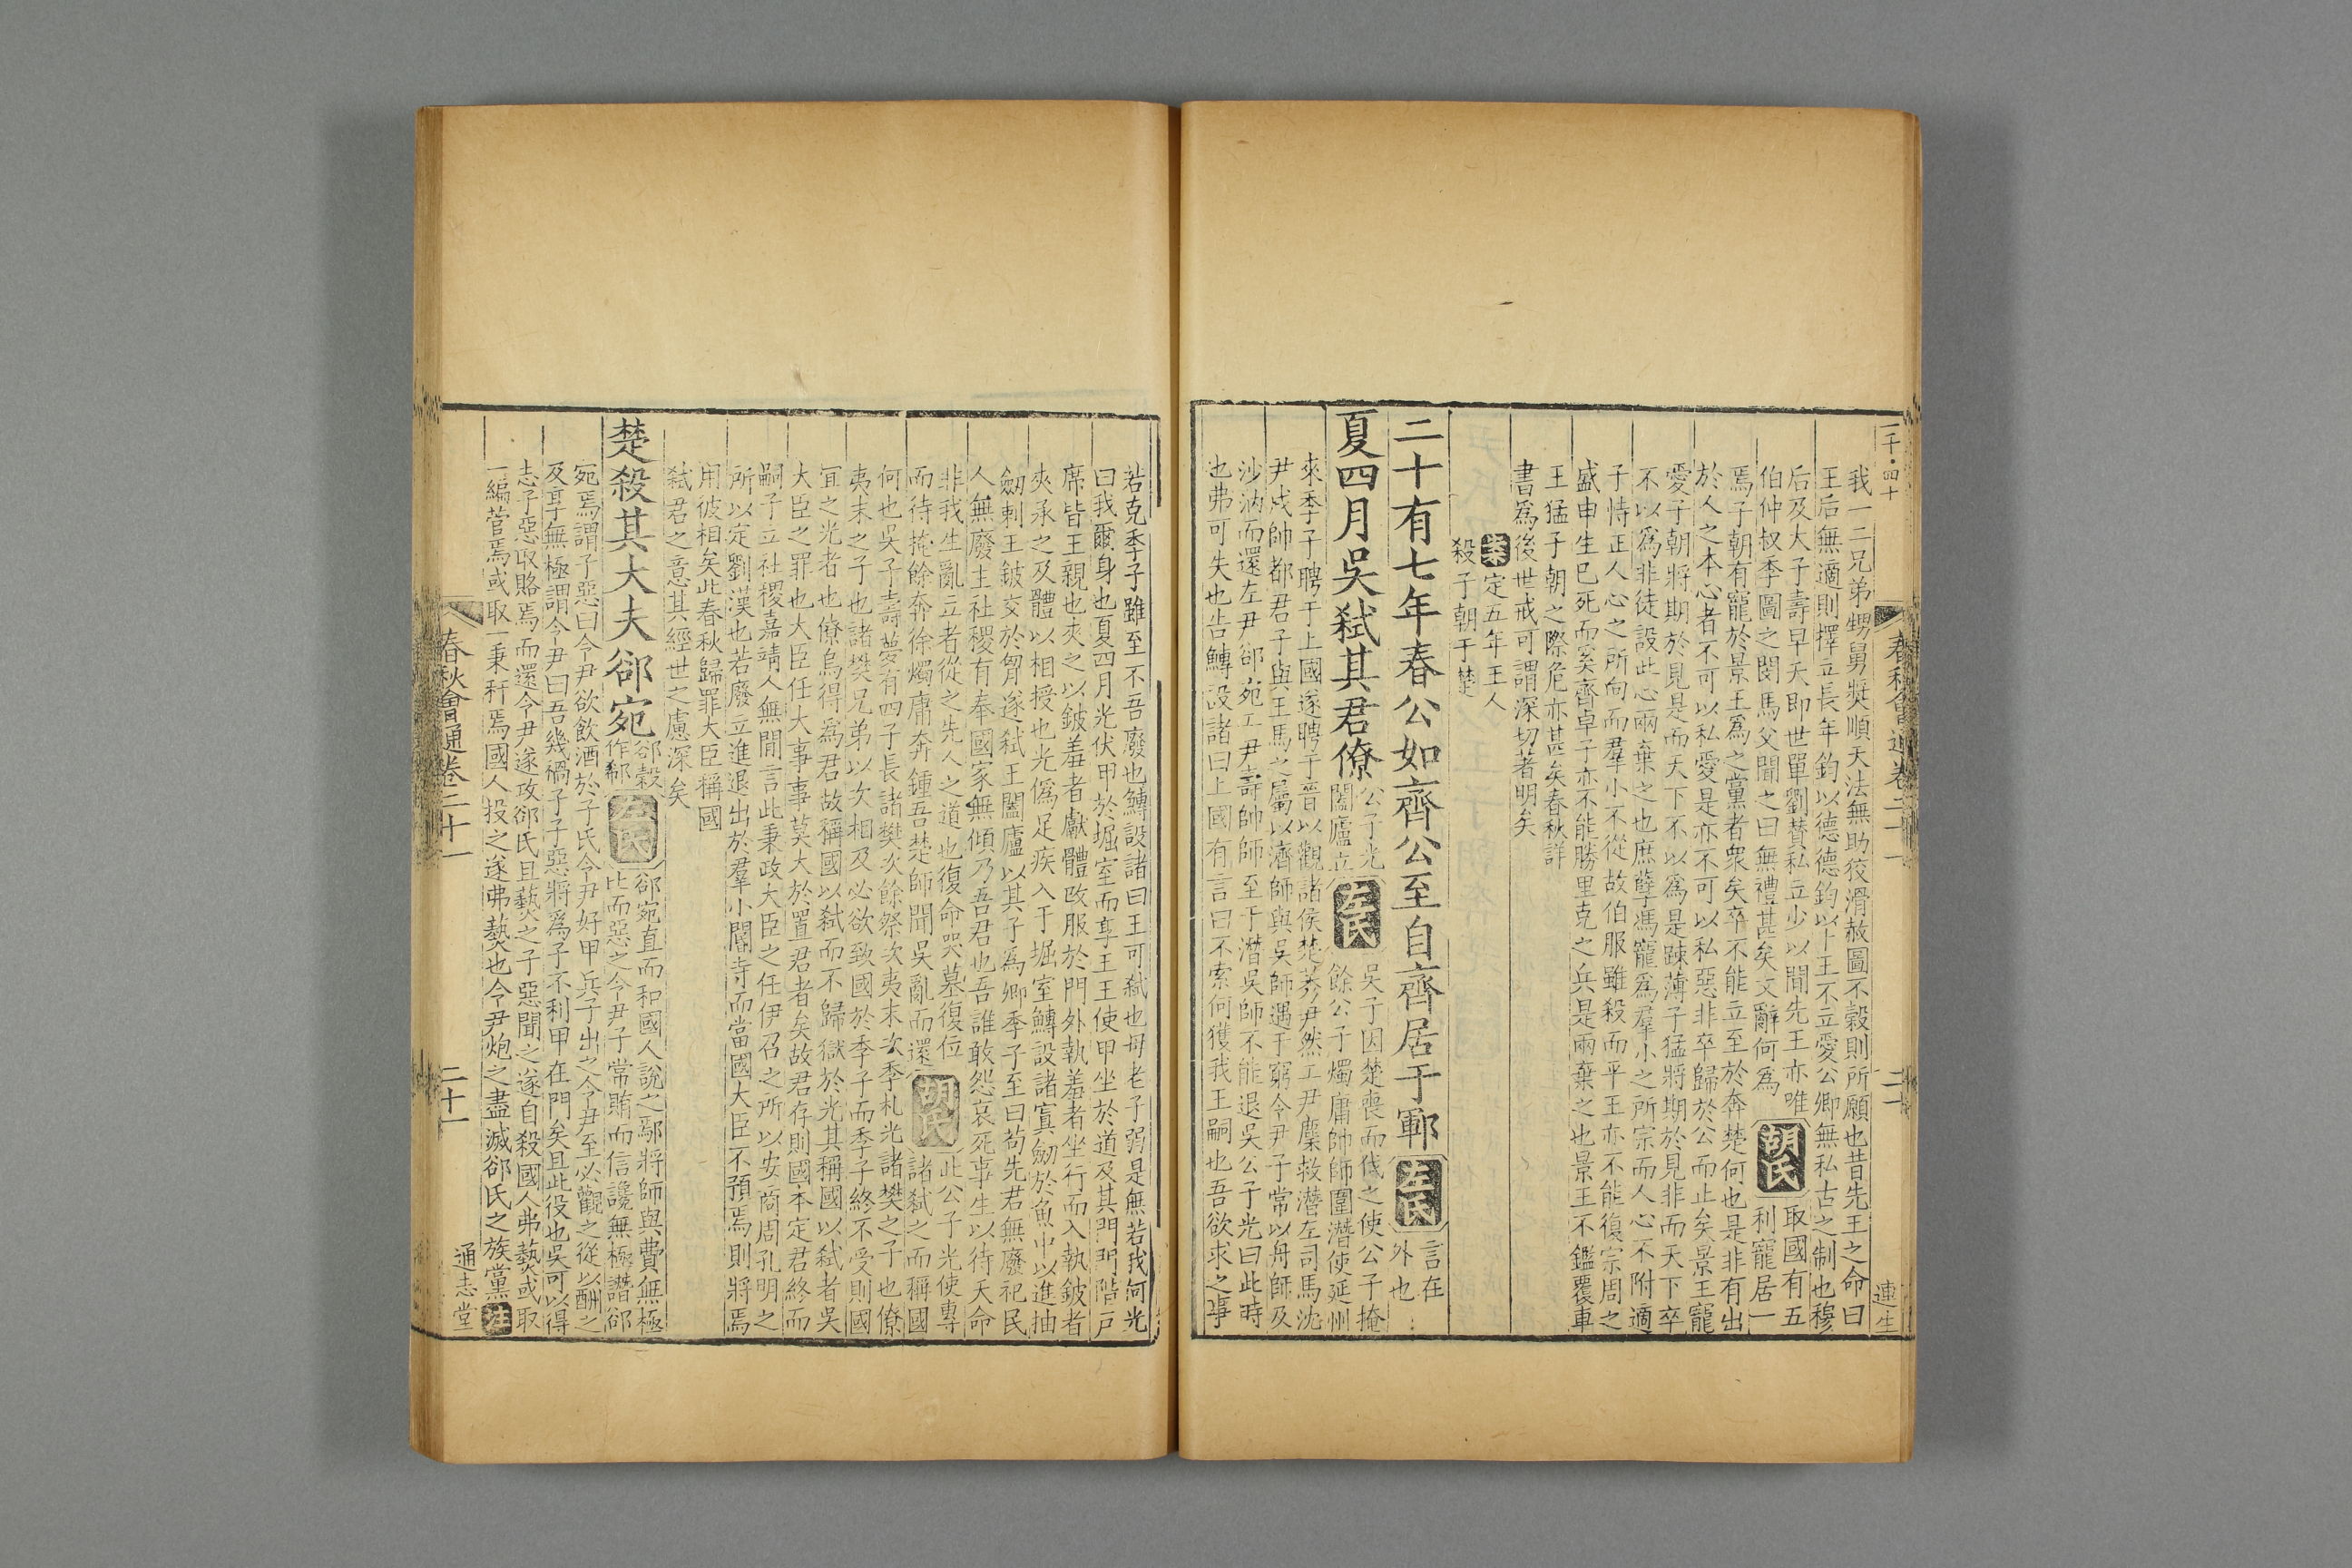 一千·四十
春秋會通卷二十一
二十
連生
我一二兄弟甥舅奬順天法無助狡滑赦圖不穀則所願也昔先王之命曰
王后無適則擇立長年鈞以德德鈞以卜王不立愛公卿無私古之制也穆
后及大子壽早夭即世單劉贊私立少以間先王亦唯
伯仲叔季圖之閔馬父聞之曰無禮甚矣文辭何爲
胡氏
取國有五
利寵居一
焉子朝有寵於景王爲之黨者衆矣卒不能立至於奔楚何也是非有出
於人之本心者不可以私愛是亦不可以私惡非卒歸於公而止矣景王寵
愛子朝將期於見是而天下不以爲是踈薄子猛將期於見非而天下卒
不以爲非徒設此心兩棄之也庶孽馮寵爲羣小之所宗而人心不附適
子恃正人心之所向而羣小不從故伯服雖殺而平王亦不能復宗周之
盛申生已死而奚齊卓子亦不能勝里克之兵是兩棄之也景王不鑑覆車
王猛子朝之際危亦甚矣春秋詳
書爲後世戒可謂深切著明矣
案
定五年王人
殺子朝于楚
二十有七年春公如齊公至自齊居于鄆
左氏
言在
外也
夏四月吳弑其君僚
公子光
闔廬立
左氏
吳子因楚喪而伐之使公子掩
餘公子燭庸帥師圍潛使延州
來季子聘于上國遂聘于晉以觀諸侯楚莠尹然工尹麇救潛左司馬沈
尹戌帥都君子與王馬之屬以濟師與吳師遇于窮令尹子常以舟師及
沙汭而還左尹郤宛工尹壽帥師至于潛吳師不能退吳公子光曰此時
也弗可失也告鱄設諸曰上國有言曰不索何獲我王嗣也吾欲求之事
若克季子雖至不吾廢也鱄設諸曰王可弑也母老子弱是無若我何光
曰我爾身也夏四月光伏甲於堀室而享王王使甲坐於道及其門門階戶
席皆王親也夾之以鈹羞者獻體改服於門外執羞者坐行而入執鈹者
夾承之及體以相授也光僞足疾入于堀室鱄設諸寘劒於魚中以進抽
劒剌王鈹交於胷遂弑王闔廬以其子爲卿季子至曰苟先君無廢祀民
人無廢主社稷有奉國家無傾乃吾君也吾誰敢怨哀死事生以待天命
非我生亂立者從之先人之道也復命哭墓復位
而待掩餘奔徐燭庸奔鍾吾楚師聞吳亂而還
胡氏
此公子光使專
諸弑之而稱國
何也吳子壽夢有四子長諸樊次餘祭次夷末次季札光諸樊之子也僚
夷末之子也諸樊兄弟以次相及必欲致國於季子而季子終不受則國
冝之光者也僚烏得爲君故稱國以弑而不歸獄於光其稱國以弑者吳
大臣之罪也大臣任大事事莫大於置君者矣故君存則國本定君終而
嗣子立社稷嘉靖人無閒言此秉政大臣之任伊召之所以安商周孔明之
所以定劉漢也若廢立進退出於羣小閽寺而當國大臣不預焉則將焉
用彼相矣此春秋歸罪大臣稱國
弑君之意其經世之慮深矣
楚殺其大夫郤宛
郤穀
作郗
左氏
郤宛直而和國人說之鄢將師與費無極
比而惡之令尹子常賄而信讒無極譖郤
宛焉謂子惡曰令尹欲飲酒於子氏令尹好甲兵子出之令尹至必觀之從以酬之
及享無極謂令尹曰吾幾禍子子惡將爲子不利甲在門矣且此役也吳可以得
志子惡取賂焉而還令尹遂攻郤氏且爇之子惡聞之遂自殺國人弗爇或取
一編菅焉或取一秉秆焉國人投之遂弗爇也令尹炮之盡滅郤氏之族黨
注
春秋會通卷二十一
二十一
通志堂